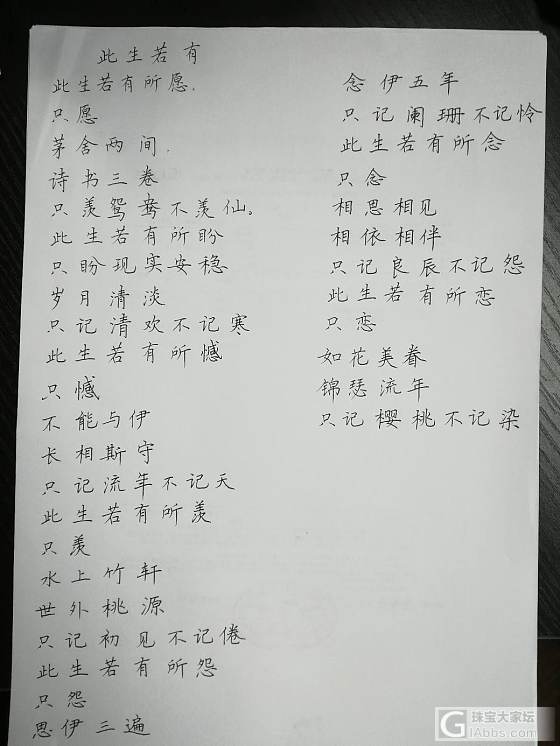 此生若有
此生若有所愿.
只愿
茅舍两间.
诗书三卷
只羡鸳鸯不羡仙。
此生若有所盼
只盼现实安稳
岁月清淡
只记清欢不记寒
此生若有所憾
只憾
不能与伊
长相斯守
只记流年不记天
此生若有所羡
只羡
水上竹轩
世外桃源
只记初见不记倦
此生若有所怨
只怨
思伊三遍
念伊五年
只记阑珊不记怜
此生若有所念
只念
相思相见
相依相伴
只记良辰不记怨
此生若有所恋
只恋
如花美眷
锦瑟流年
只记樱桃不记染
珠宝大家坛
IAbbs.com